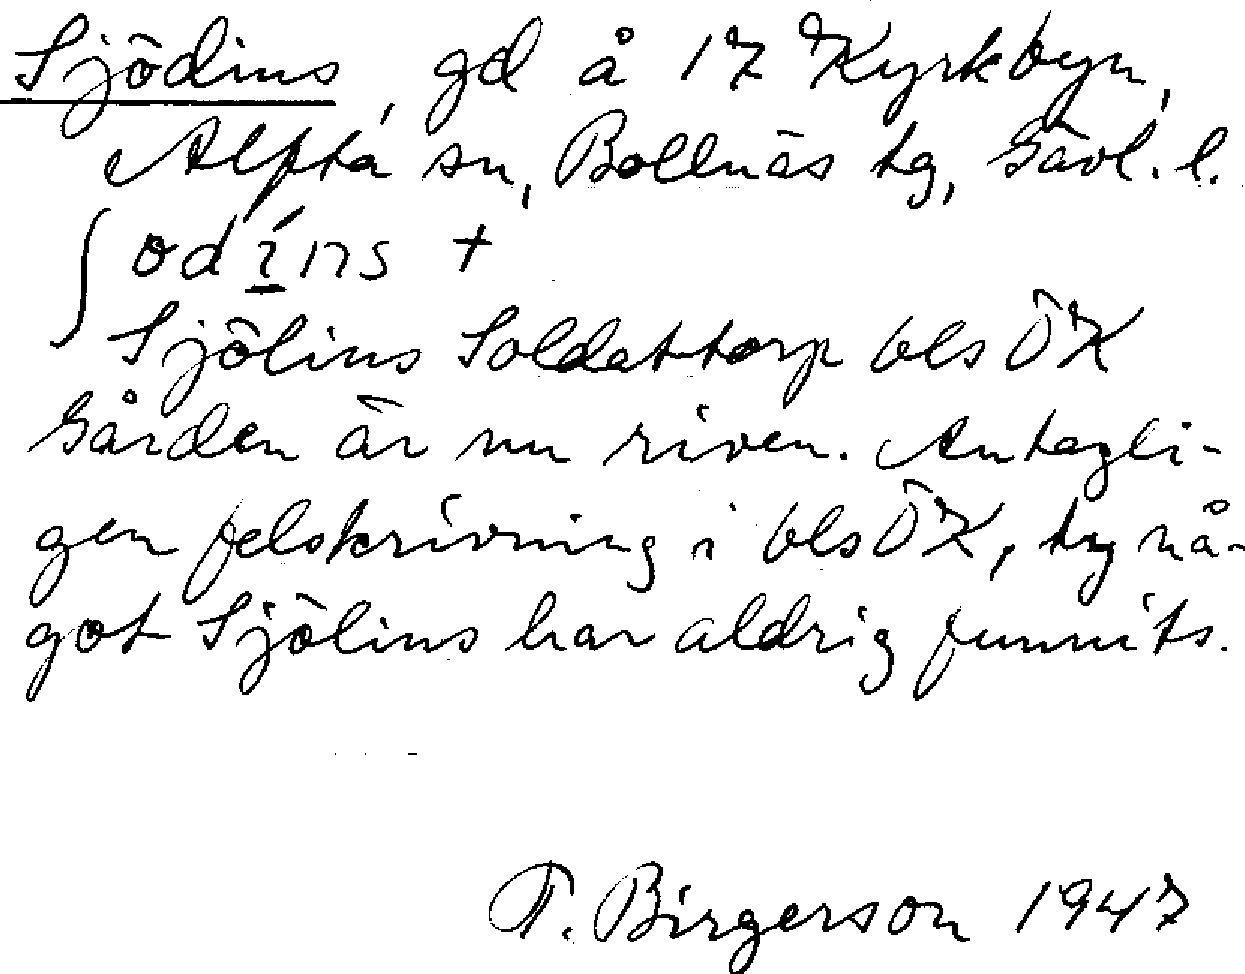 Sjödins, gd å 17 Kyrkbyn,
Alfta sn, Bollnäs tg, Gävl. l.
ʃodíns +
Sjölins Soldattorp bls ÖK
Gården är nu riven. Antagli-
gen felskrivning i bls ÖK, ty nå-
got Sjölins har aldrig funnits.
T. Birgerson 1947